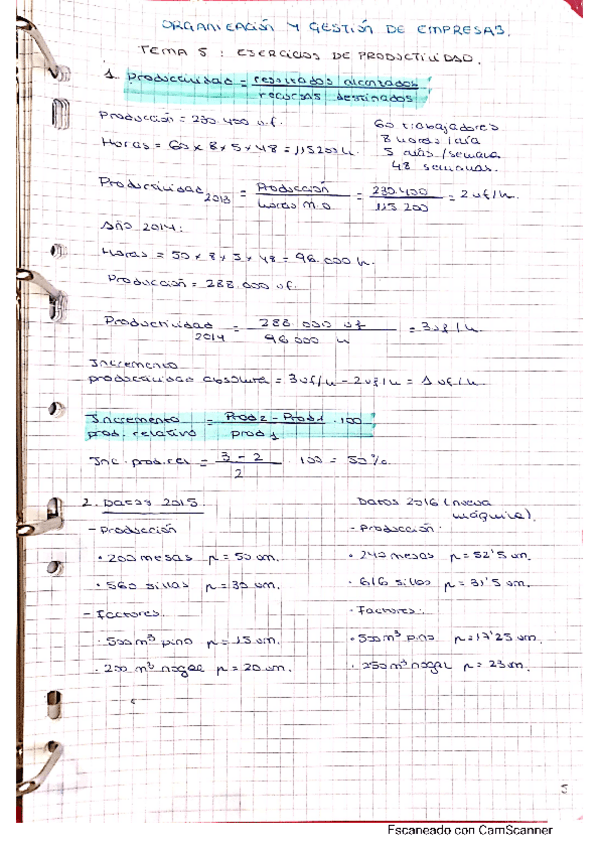 ORGANIZACIÓN Y GESTIÓN DE EMPRESAS.
TEMA 5 : EJERCICIOS DE PRODUCTIVIDAD.
1. Productividad = resultados alcanzados / recursos destinados
Producción = 230.400 u.f.
60 trabajadores
8 horas / día
5 días / semana
48 semanas.
Horas = 60 x 8 x 5 x 48 = 115200 h.
Productividad 2013 = Producción / horas M.O. = 230.400 / 115 200 = 2 uf/h.
Año 2014:
Horas = 50 x 8 x 5 x 48 = 96.000 h.
Producción = 288.000 uf.
Productividad 2014 = 288.000 uf / 96000 h = 3uf/h
Incremento
productividad absoluta = 3uf/h - 2uf/h = 1 uf/h.
Incremento prod. relativo = Prod2 - Prod1 / prod 1 . 100
Inc. prod. rel = 3 - 2 / 2 . 100 = 50%.
2. Datos 2015
- Producción
• 200 mesas p = 50 um.
• 560 sillas p = 30 um.
- Factores.
• 500 m³ pino p = 15 um.
• 200 m³ nogal p = 20 um.
Datos 2016 (nueva
máquina).
- Producción:
• 240 mesas p = 52'5 um.
• 616 sillas p = 31'5 um.
- Factores:
• 550 m³ pino p = 17'25 um.
• 250 m³ nogal p = 23 um.
5
Escaneado con CamScanner